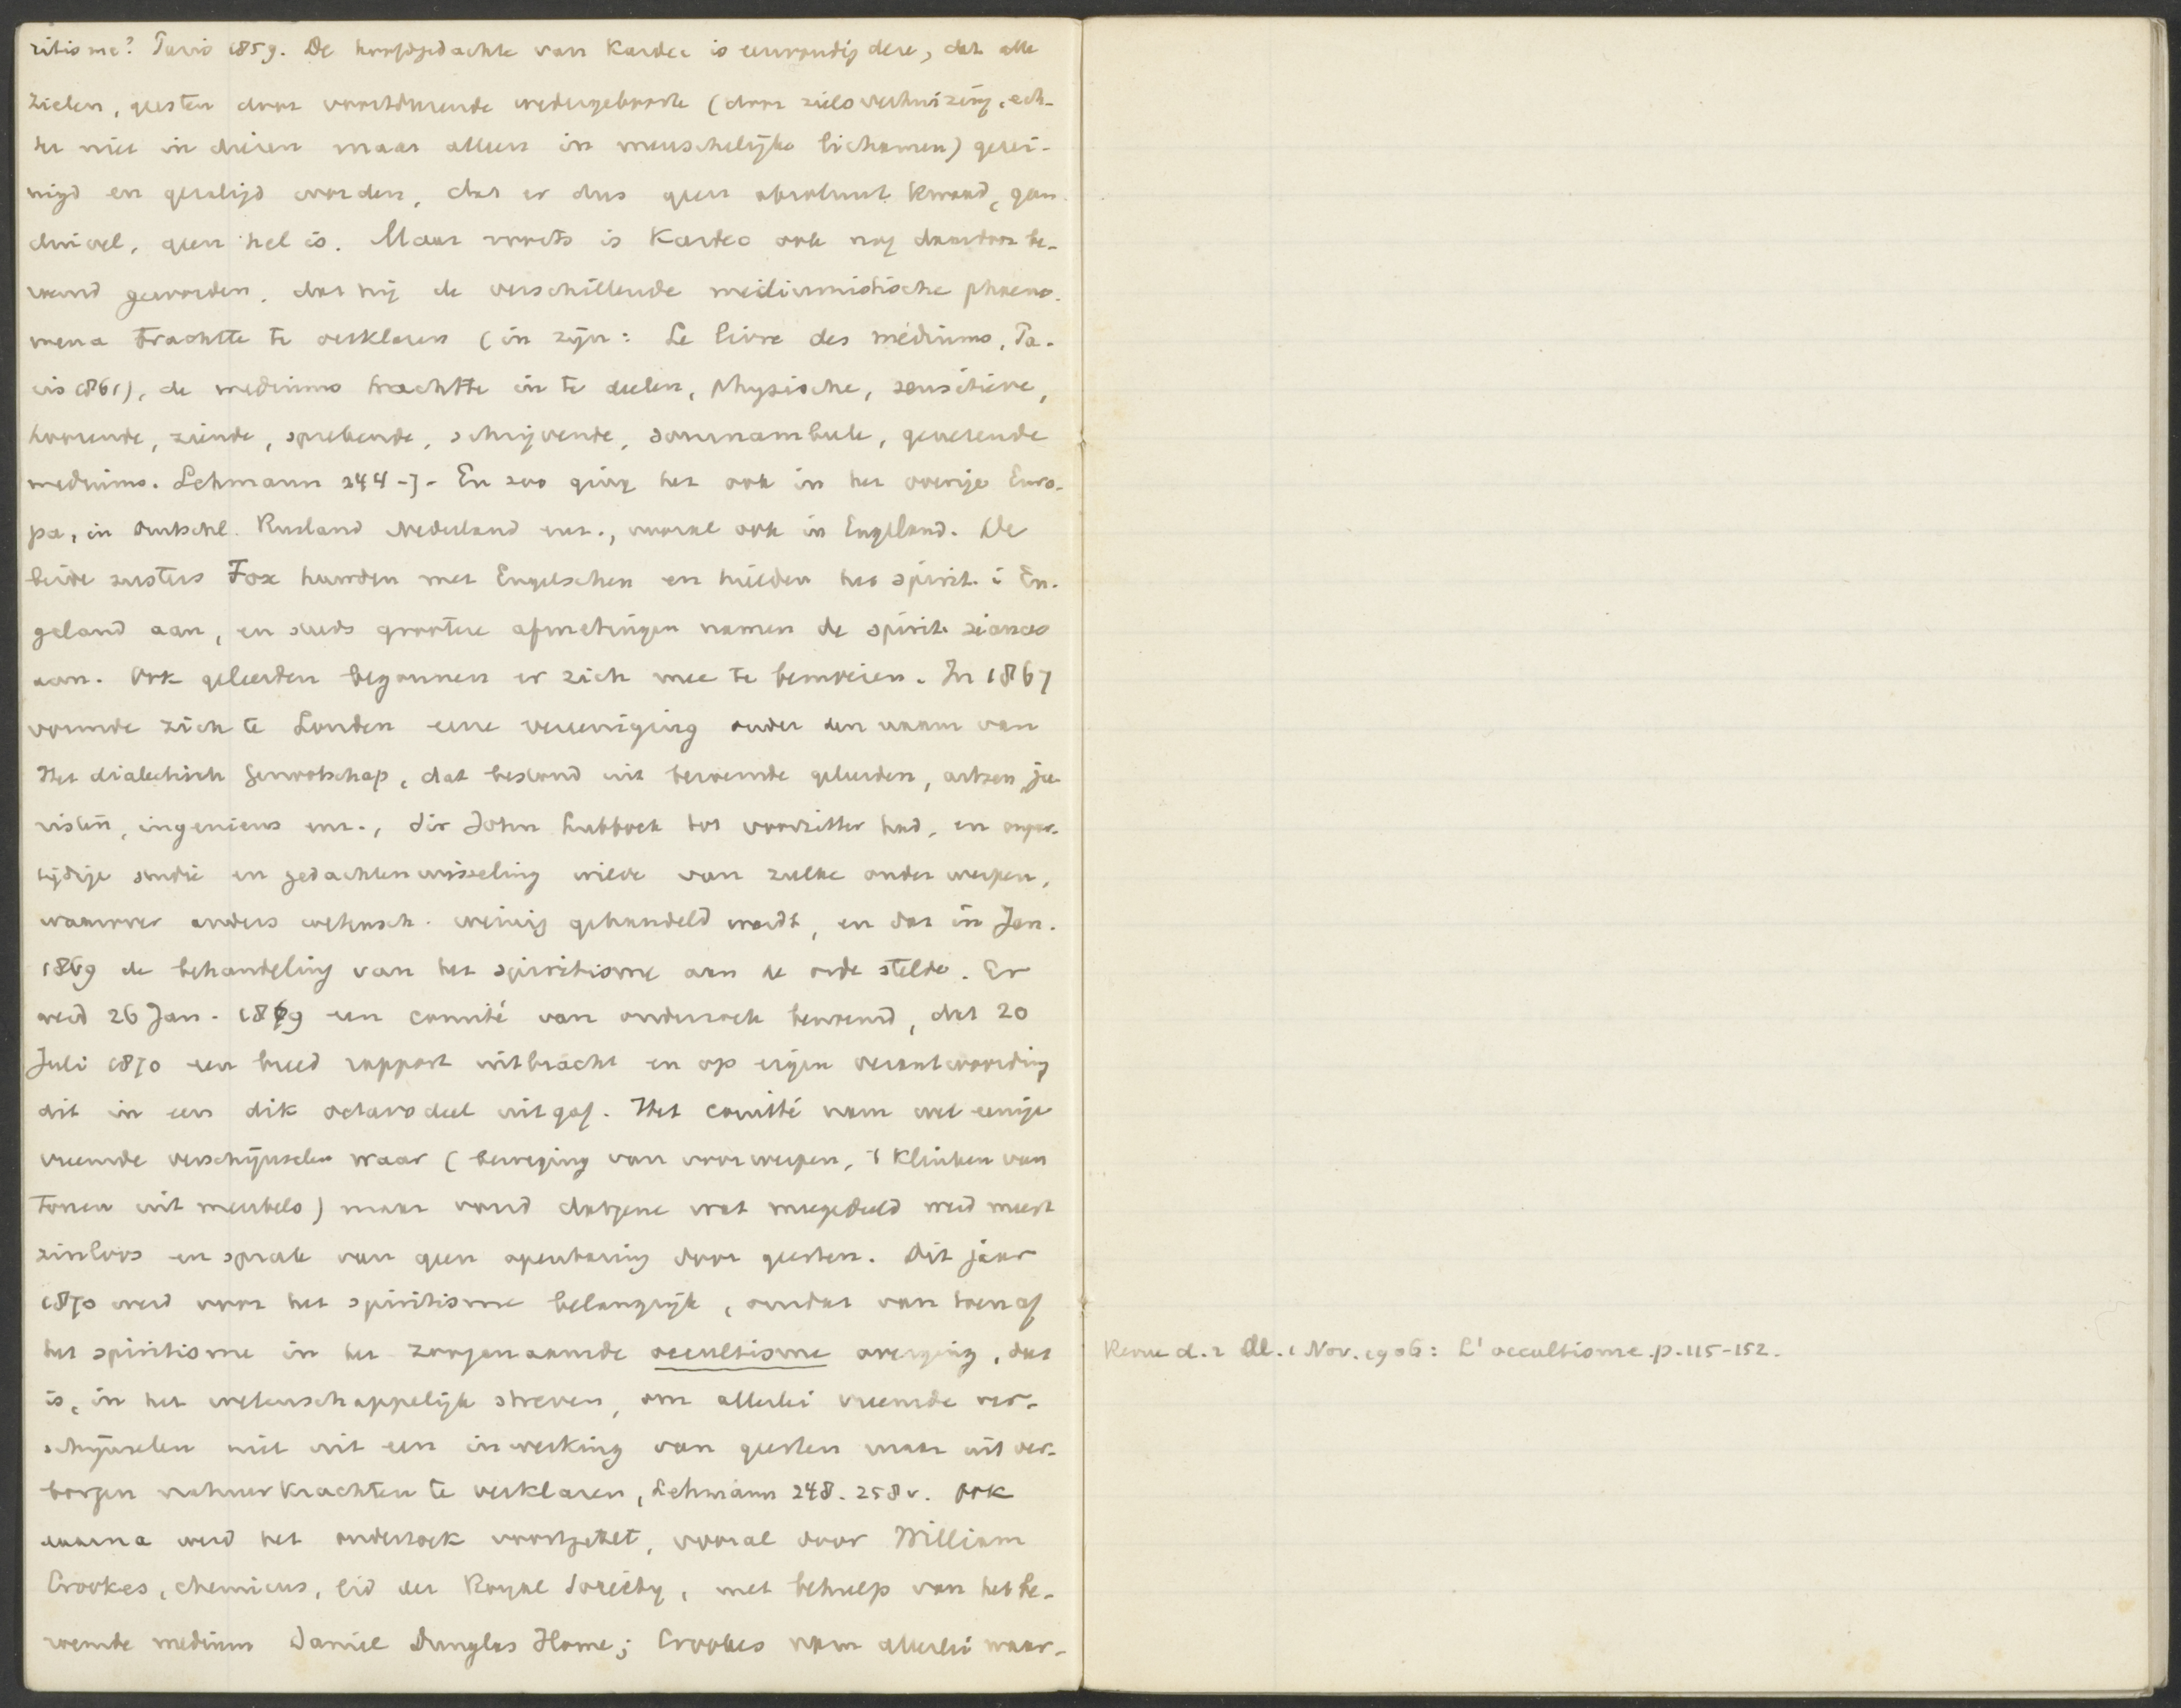 ritisme? Paris 1859. De hoofdgedachte van Kardec is eenvoudig deze, dat alle
zielen, geesten door voortdurende wedergeboorte (door zielsverhuizing, ech-
ter niet in dieren maar alleen in menschelijke lichamen) gerei-
nigd en gezaligd worden, dat er dus geen absoluut kwaad, geen
duivel, geen hel is. Maar voorts is Kardec ook nog daardoor be-
kend geworden, dat hij de verschillende mediumistische phaeno-
mena trachtte te verklaren (in zijn: Le livre des médiums, Pa-
ris 1861), de mediums trachtte in te deelen, physische, sensitieve,
hoorende, ziende, sprekende, schrijvende, somnambule, genezende
mediums. Lehmann 244-7- En zoo ging het ook in het overige Euro-
pa, in Duitschl. Rusland Nederland enz., vooral ook in Engeland. De
beide zusters Fox huwden met Engelschen en hielden het spirit. i En-
geland aan, en steeds grootere afmetingen namen de spirit. séances
aan. Ook geleerden begonnen er zich mee te bemoeien. In 1867
vormde zich te Londen eene vereeniging onder den naam van
Het dialectisch Genootschap, dat bestond uit beroemde geleerden, artsen, ju-
risten, ingenieurs enz., Sir John Lubbock tot voorzitter had, en onpar-
tijdige studie en gedachtenwisseling wilde van zulke onderwerpen,
waarover anders wetensch. weinig gehandeld wordt, en dat in Jan.
1869 de behandeling van het spiritisme aan de orde stelde. Er
werd 26 Jan. 1869 een comité van onderzoek benoemd, dat 20
Juli 1870 een breed rapport uitbracht en op eigen verantwoording
dit in een dik octavo deel uitgaf. Het comité nam wel eenige
vreemde verschijnselen waar (beweging van voorwerpen, 't klinken van
tonen uit meubels) maar vond datgene wat meegedeeld werd meest
zinloos en sprak van geen openbaring door geesten. Dit jaar
1870 werd voor het spiritisme belangrijk, omdat van toen af
het spiritisme in het zoogenaamde occultisme overging, dat
is, in het wetenschappelijk streven, om allerlei vreemde ver-
schijnselen niet uit een inwerking van geesten maar uit ver-
borgen natuurkrachten te verklaren, Lehmann 248. 258v. Ook
daarna werd het onderzoek voortgezet, vooral door William
Crookes, chemicus, lid der Royal Society, met behulp van het be-
roemde medium Daniel Dunglas Home; Crookes nam allerlei waar-
Revue d. 2 M. 1 Nov. 1906: L'occultisme. p. 115-152.